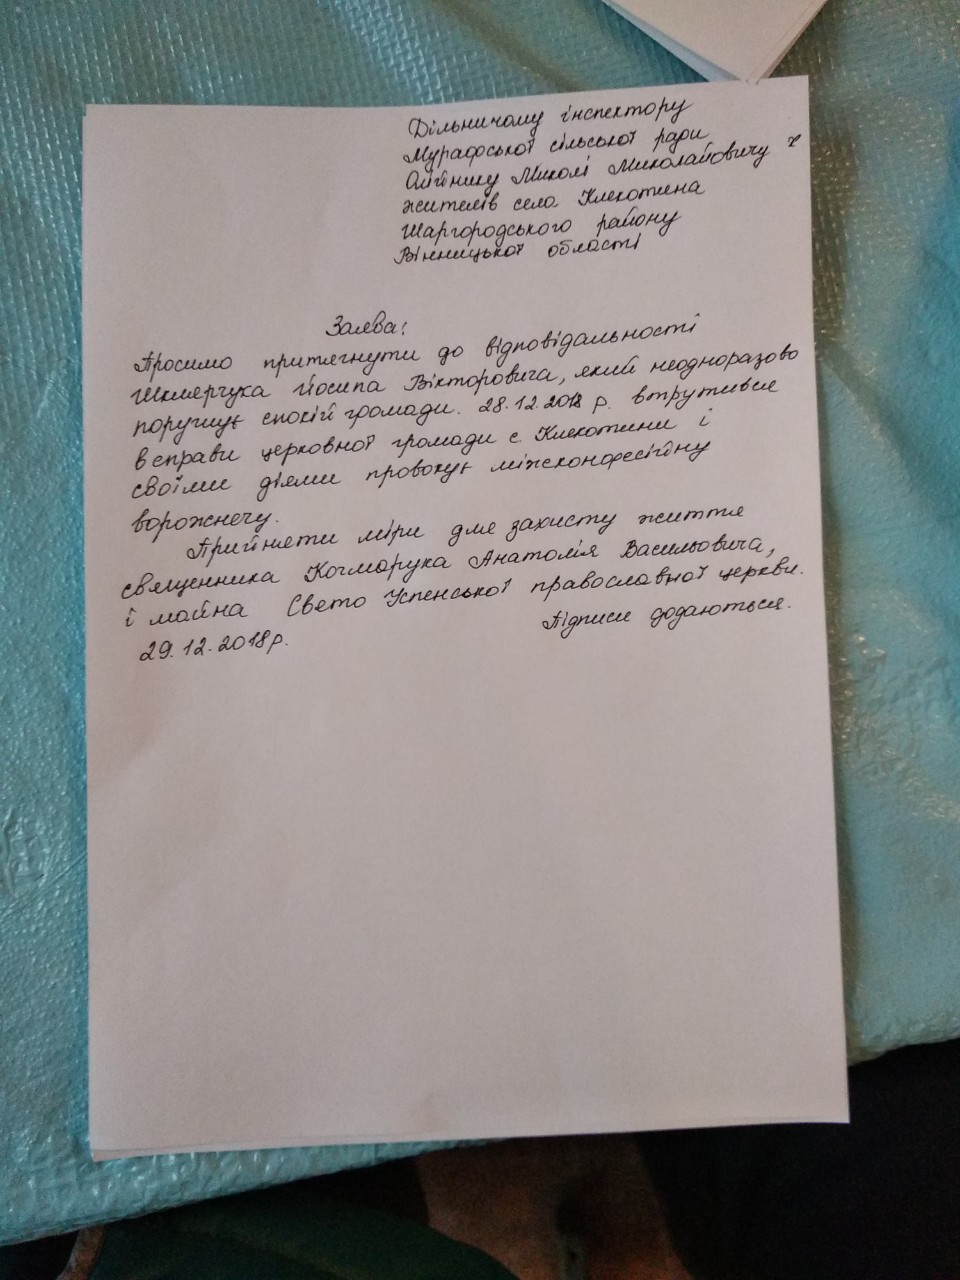 Дільничому інспектору
Мурафської сільської ради
Олійнику Миколі Миколайовичу
жителів села Клекотина
Шаргородського району
Вінницької області
Заява:
Просимо притягнути до відповідальності
Шклярчука Йосипа Вікторовича, який неодноразово
порушує спокій громади. 28.12.2018 р. втрутився
в справи церковної громади с. Клекотини і
своїми діями провокує міжконфесігдну
ворожнечу.
Прийняти міри для захисту життя
священника Когмарука Анатолія Васильовича,
і майна Свято Успенської православної церкви.
Підписи додаються.
29.12.2018р.